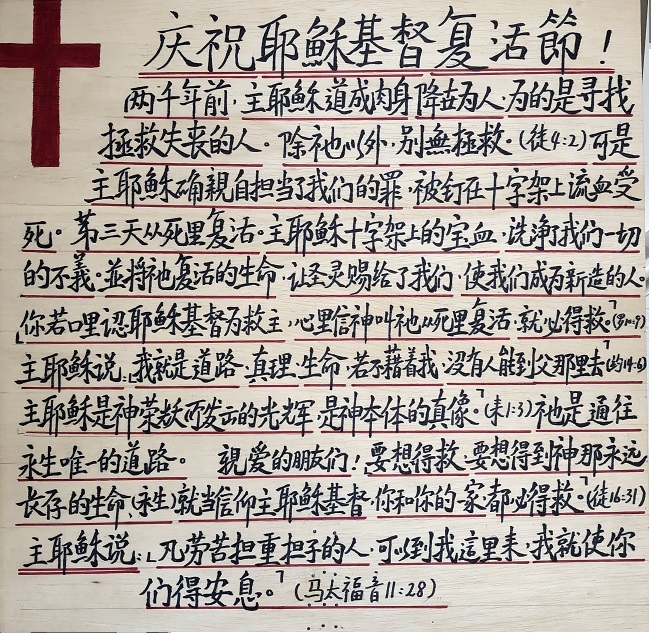 庆祝耶稣基督复活節！
两千年前，主耶稣道成肉身降世为人，为的是寻找
拯救失丧的人。除祂以外，别無拯救。(徒4:2)可是
主耶稣确親自担当了我们的罪，被钉在十字架上流血受
死。第三天从死里复活。主耶稣十字架上的宝血，洗淨了我们一切
的不義。並将祂复活的生命，让圣灵赐给了我们，使我们成为新造的人。
「你若口里認耶稣基督为救主，心里信神叫祂从死里复活，就必得救。」(罗10:9)
主耶稣说：「我就是道路，真理，生命，若不藉着我，没有人能到父那里去」(约14:6)
主耶稣是神荣耀所发出的光辉，是神本体的真像。」(来1:3)祂是通往
永生唯一的道路。 親爱的朋友们！要想得救，要想得到神那永远
长存的生命，(永生)就当信仰主耶稣基督，你和你的家，都必得救。」(徒16:31)
主耶稣说：「凡劳苦担重担子的人，可以到我這里来，我就使你
们得安息。」(马太福音11:28)